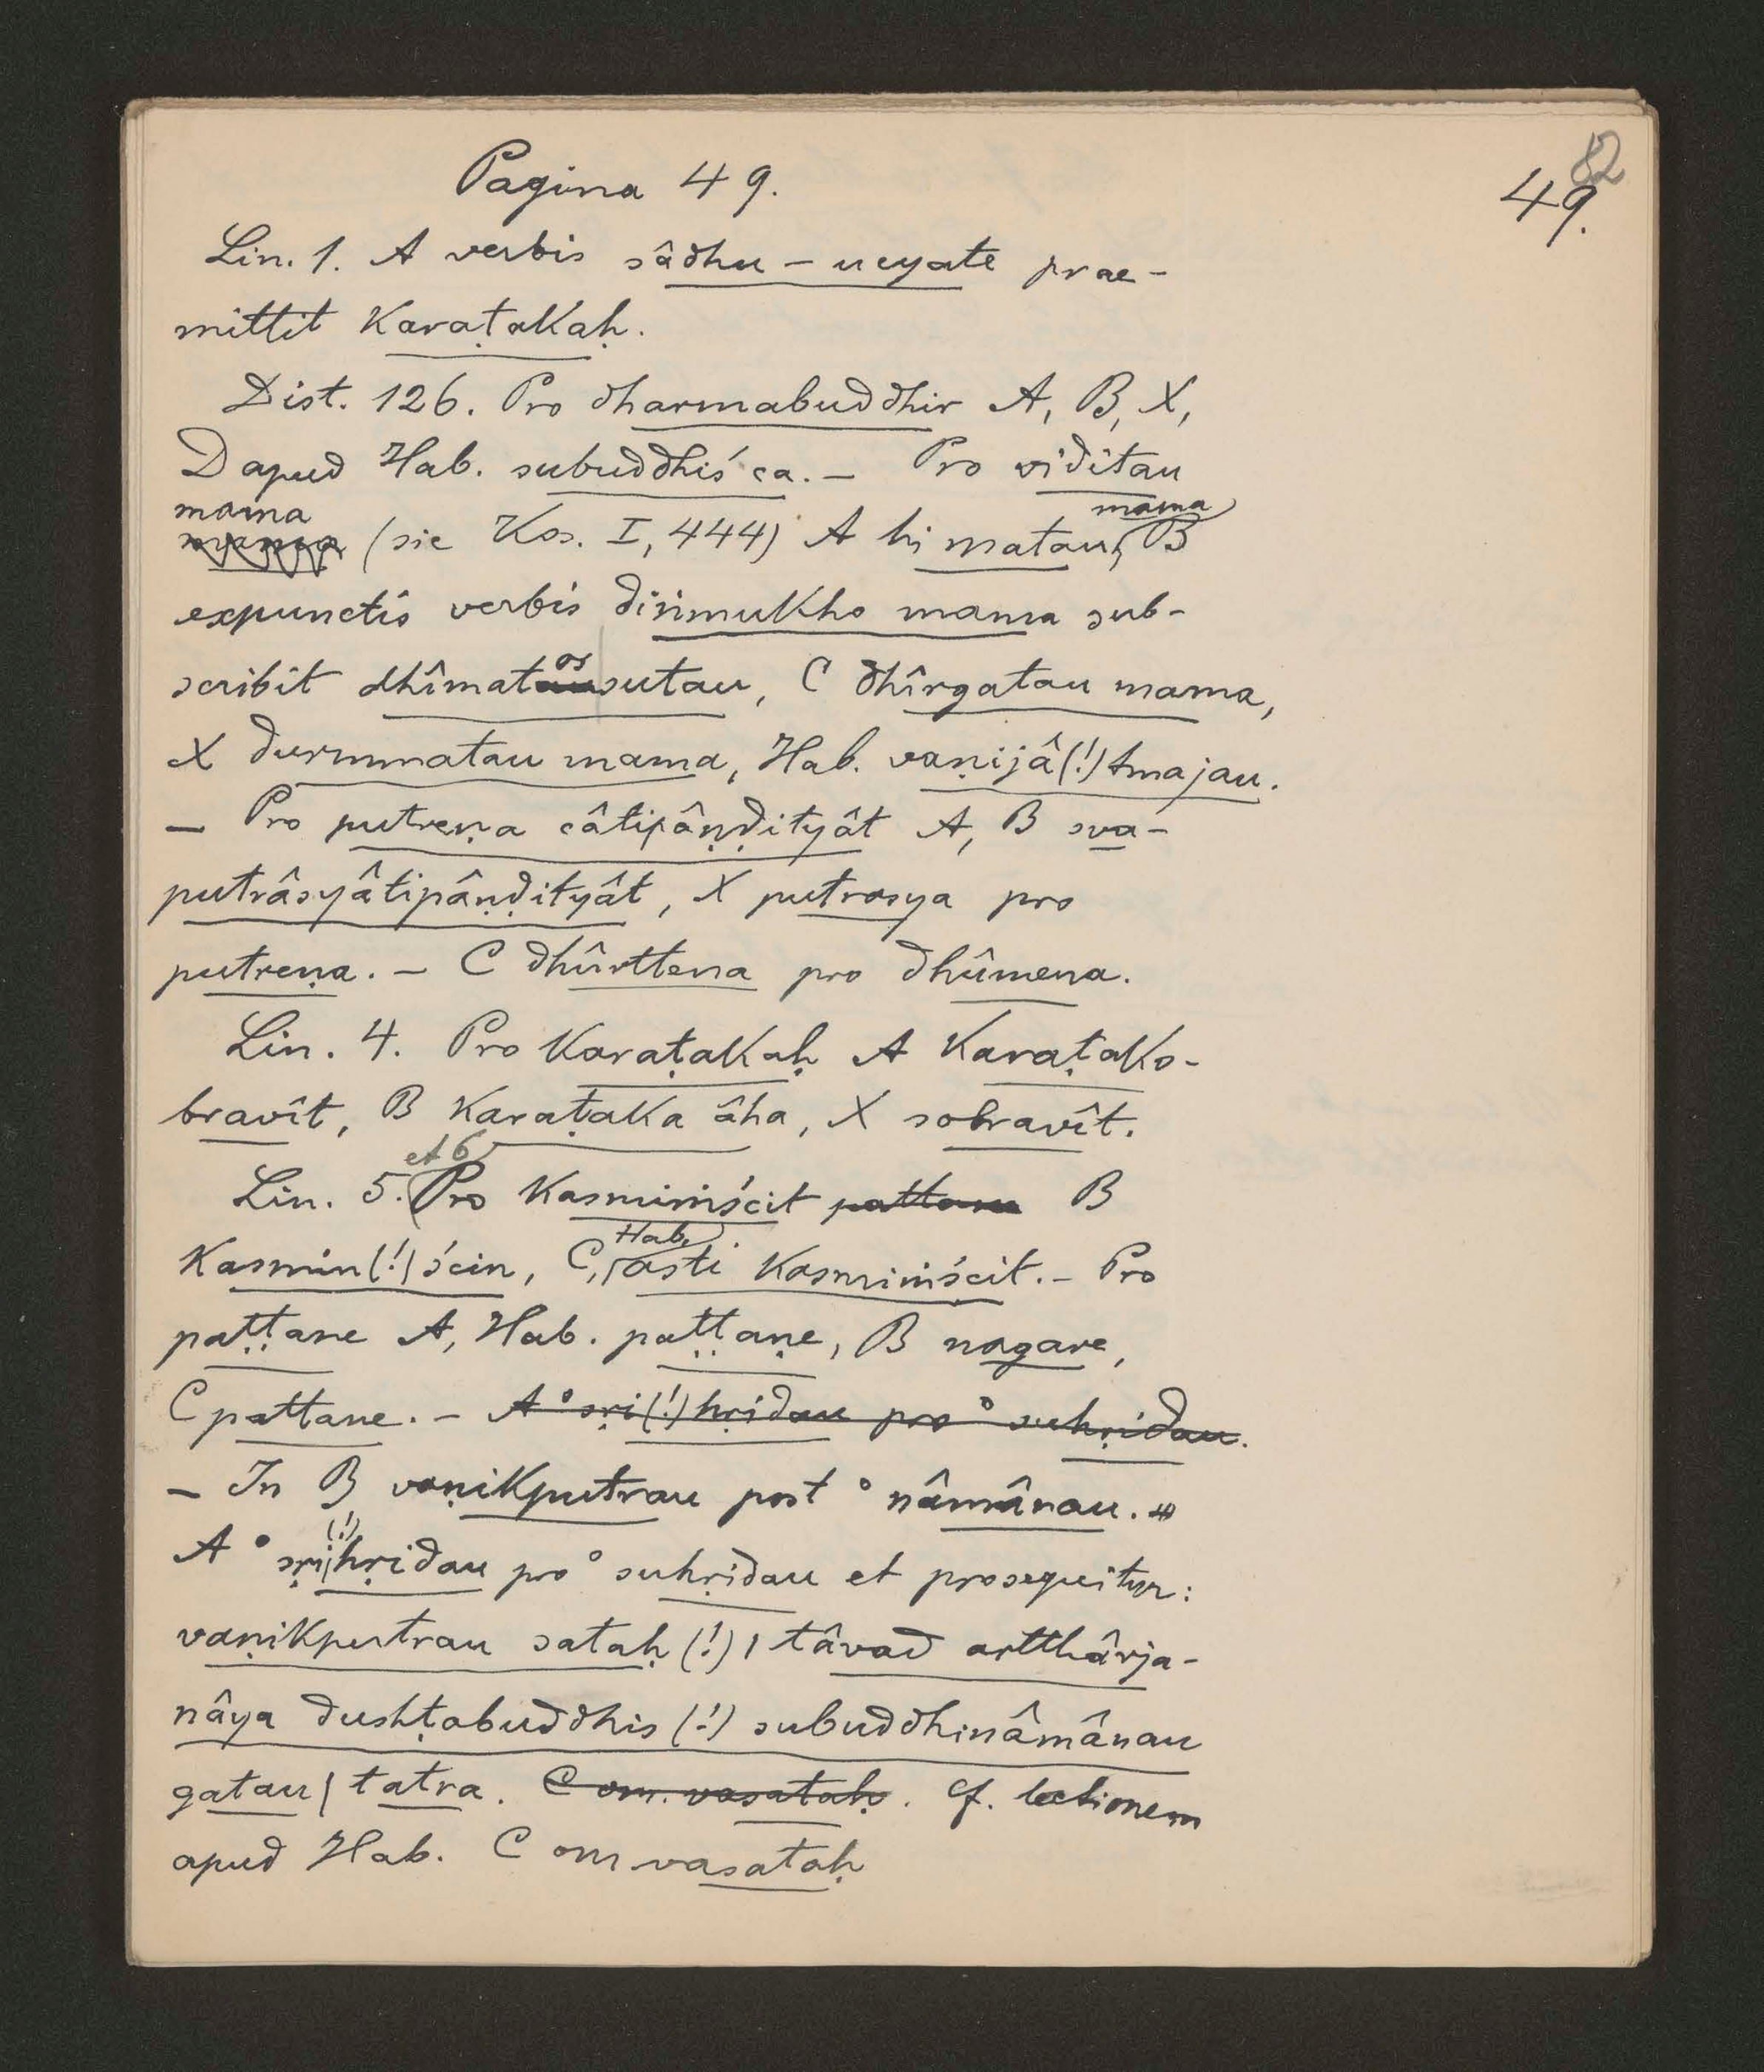 82
Pagina 49.
49.
Lin. 1. A verbis sâdhu – ucyate prae-
mittit Karaṭakaḥ.
Dist. 126. Pro dharmabuddhir A, B, X,
D apud Hab. subuddhiś ca. – Pro viditau
mama
(sic Kos. I, 444) A hi matau mama, B
expunctis verbis diṅmukho mama sub-
scribit dhîmatossutau, C dhîrgatau mama,
X durmmatau mama, Hab. vaṇijâ(!)tmajau.
– Pro putreṇa câtipâṇḍityât A, B sva-
putrâsyâtipâṇḍityât, X putrasya pro
putreṇa. – C dhûrttena pro dhûmena.
Lin. 4. Pro Karaṭakaḥ A Karaṭako-
bravît, B Karaṭaka âha, X sobravît.
Lin. 5. et 6 Pro Kasmiṁścit pattane B
Kasmin(!)ścin, C, Hab. asti Kasmiṁścit. – Pro
paṭṭane A, Hab. paṭṭaṇe, B nagare,
C pattane. – A °sṛi(!)hṛidau pro °suhṛidau.
– In B vaṇikputrau post °nâmânau.
A °sṛi(!)hṛidau pro °suhṛidau et prosequitur:
vaṇikputrau sataḥ (!) | tâvad artthârja-
nâya dushṭabuddhis (!) subuddhinâmânau
gatau | tatra. C om. vasataḥ. Cf. lectionem
apud Hab. C om vasataḥ